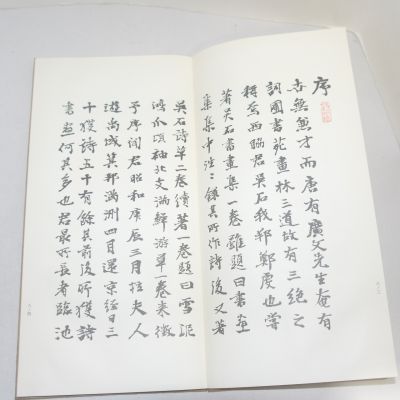 序
古無無才而唐有廣文先生奄有
詞園書苑畫林三道故有三絕之
稱吾西脇君吳石我邦鄭虔也嘗
著吳石書畫集一卷雖題曰書畫
集集中往〻錄其所作詩後又著
吳石詩草二卷續著一卷題曰雪泥
鴻爪頃袖北支滿鮮游草一卷来徵
予序閱君昭和庚辰三月拉夫人
遊尚城冀邦滿洲四月還京經日三
十獲詩五十有餘其前後所獲詩
書画何其多也君最所長者臨池